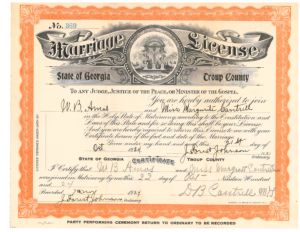 No. 989
Marriage License
State of Georgia Troup County
TO ANY JUDGE, JUSTICE OF THE PEACE, OR MINISTER OF THE GOSPEL.
You are hereby authorized to join
W. B. Amos and Miss Margaret Cantrell
in the Holy State of Matrimony according to the Constitution and
Laws of this State and for so doing this shall be your License.
And you are hereby required to return this License to me with your
Certificate hereon of the fact and date of the Marriage.
Given under my hand and seal this 21st
Oct
STATE OF GEORGIA TROUP COUNTY
Certificate
I Certify that W B Amos and Miss Margaret Cantrell
were joined in Matrimony by me this 22 day of Oct Nineteen Hundred
and
D B Cantrell M G
PARTY PERFORMING CEREMONY RETURN TO ORDINARY TO BE RECORDED